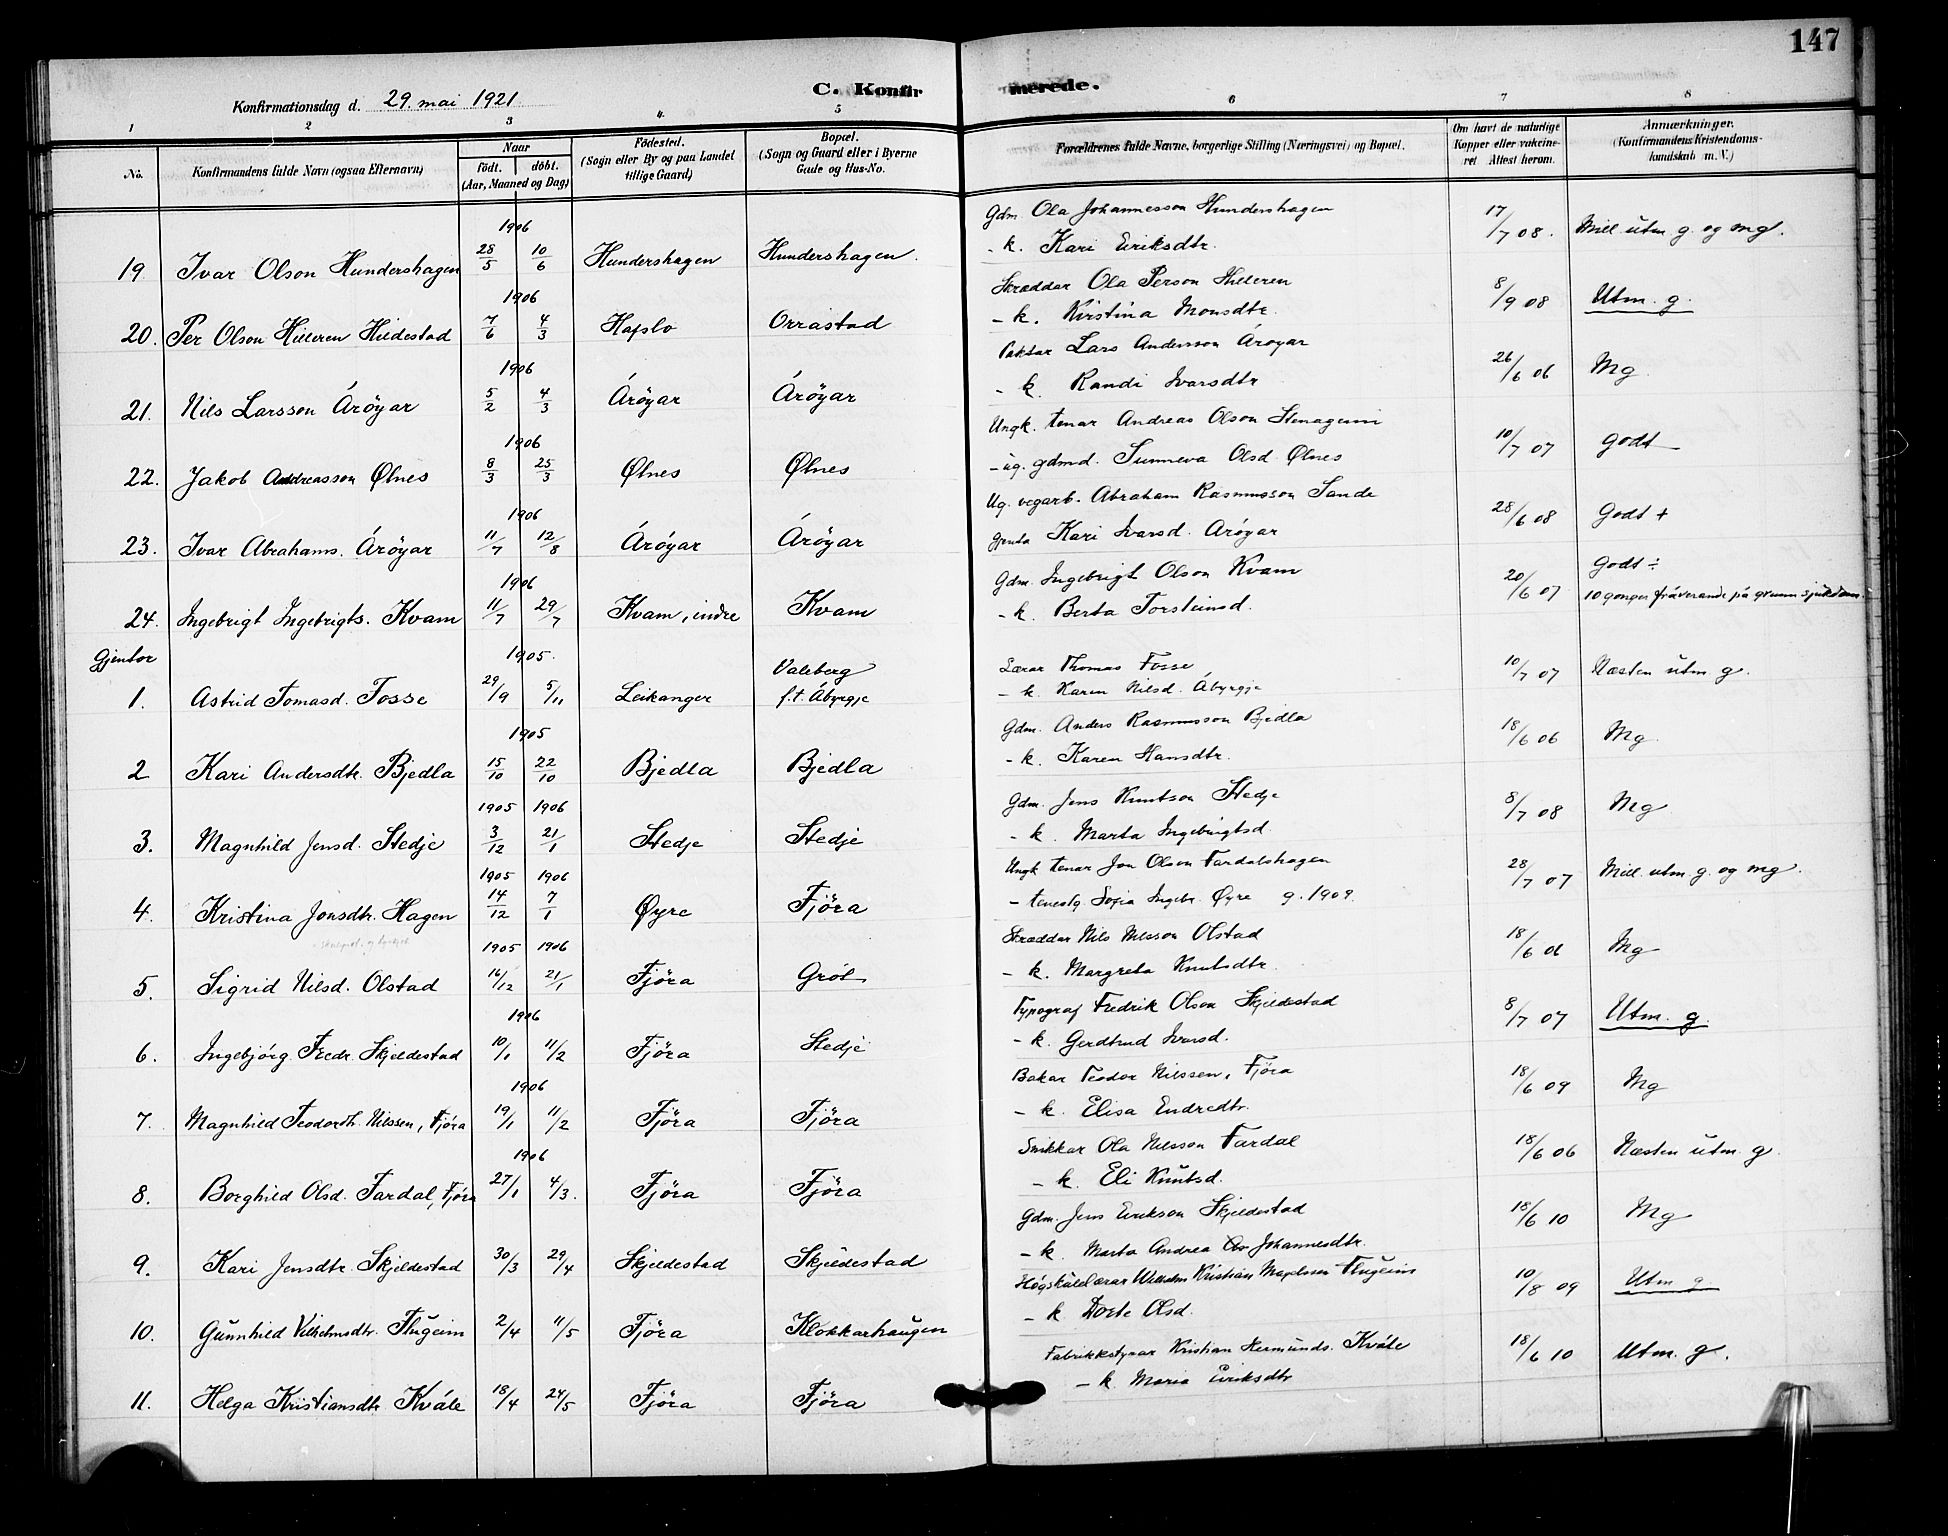 147
C. Konfirmerede.
Konfirmationsdag d. 29. mai 1921
1 2 3 4. 5 6 7 8
No. Konfirmandens fulde Navn (ogsaa Efternavn) Naar født. døbt. (Aar, Maaned og Dag) Fødested. (Sogn eller By og paa Landet tillige Gaard) Bopæl. (Sogn og Gaard eller i Byerne Gade og Hus-No. Forældrenes fulde Navne, borgerlige Stilling (Næringsvei) og Bopæl. Om havt de naturlige Kopper eller vakcineret. Attest herom. Anmærkninger. (Konfirmandens Kristendomskundskab m. V.)
1906
Gdm Ola Johannesson Hundershagen
19. Ivar Olson Hundershagen 28/5 10/6 Hundershagen Hundershagen. - k. Kari Eiriksdtr. 17/7 08. Mill utm. g. og mg.
1906
Skræddar Ola Person Hilleren
20. Per Olson Hilleren Hildestad 7/6 4/3 Hafslo Orrastad - k. Kirstina Monsdtr. 8/9 08 Utm. g.
1906
Paktar Lars Andersson Árøyar
21. Nils Larsson Árøyar 5/2 4/3 Árøyar Árøyar - k. Randi Ivarsdtr 26/6 06 Mg
1906
Ungk. tenar Andreas Olson Stenageim
22. Jakob Andreasson Ølnes 8/3 25/3 Ølnes Ølnes - ug. gdmd. Sunneva Olsd Ølnes 10/7 07 Godt
1906
Ug. vegarb. Abraham Rasmusson Sande
23. Ivar Abrahams. Árøyar 11/7 12/8 Árøyar Árøyar gjenta Kari Ivarsd. Arøyar 28/6 08 Godt +
1906
Gdm. Ingebrigt Olson Kvam
24. Ingebrigt Ingebrigts. Kvam 11/7 29/7 Kvam, indre Kvam - k. Berta Torsteinsd. 20/6 07 Godt ÷ 10 gonger fráverande på grunn sjukdom.
Gjentor
1905.
1. Astrid Tomasd. Fosse 29/9 5/11 Leikanger Valeberg f.t. Ábyrgje Lærar Thomas Fosse
- k. Karen Nilsd. Ábyrgje 10/7 07 Næsten utm. g.
1905
Gdm. Anders Rasmusson Bjedla
2 Kari Andersdtr. Bjedla 15/10 22/10 Bjedla Bjedla - k. Karen Hansdtr. 18/6 06 Mg.
1905 1906
Gdm. Jens Knutson Stedje
3. Magnhild Jensd. Stedje 3/12 21/1 Stedje Stedje - k. Marta Ingebrigtsd. 8/7 08 Mg
1905 1906
Ungk tenar Jon Olson Fardalshagen
4. Kristina Jonsdtr. Hagen 14/12 7/1 Øyre Fjøra - tenestg. Sofia Ingebr. Øyre g. 1909. 28/7 07 Mill. utm g. og mg.
1905 1906
Skræddar Nils Nilsson Olstad
5. Sigrid Nilsd. Olstad 16/12 21/1 Fjøra Grøt - k. Margreta Knutsdtr. 18/6 06 Mg
1906
Typograf Fredrik Olson Skjeldestad
6. Ingebjørg Fredr. Skjeldestad 10/1 11/2 Fjøra Stedje - k. Gerdtrud Ivarsd. 8/7 07 Utm. g.
1906
Bakar Teodor Nilssen, Fjøra
7. Magnhild Teodordt. Nilssen, Fjøra 19/1 11/2 Fjøra Fjøra - k. Elisa Endredtr. 18/6 09 Mg
1906
Snikkar Ola Nilsson Fardal
8. Borghild Olsd. Fardal, Fjøra 27/1 4/3. Fjøra Fjøra - k. Eli Knutsd. 18/6 06 Næsten utm. g.
Gdm. Jens Eirikson Skjeldestad
9. Kari Jensdtr. Skjeldestad 30/3 29/4 Skjeldestad Skjeldestad - k. Marta Andrea Johannesdtr. 18/6 10 Mg
Høgskulelærar Wilhelm Kristian Magelssen Flugeim
10. Gunnhild Vilhelmsdtr. Flugeim 2/4 11/5 Fjøra Klokkarhaugen - k Dorte Olsd. 10/8 09 Utm g.
Fabrikkstyrar Kristian Hermunds. Kvåle
11. Helga Kristiansdtr Kvåle 18/4 24/5 Fjøra Fjøra - k. Maria Eiriksdtr 18/6 10 Utm. g.